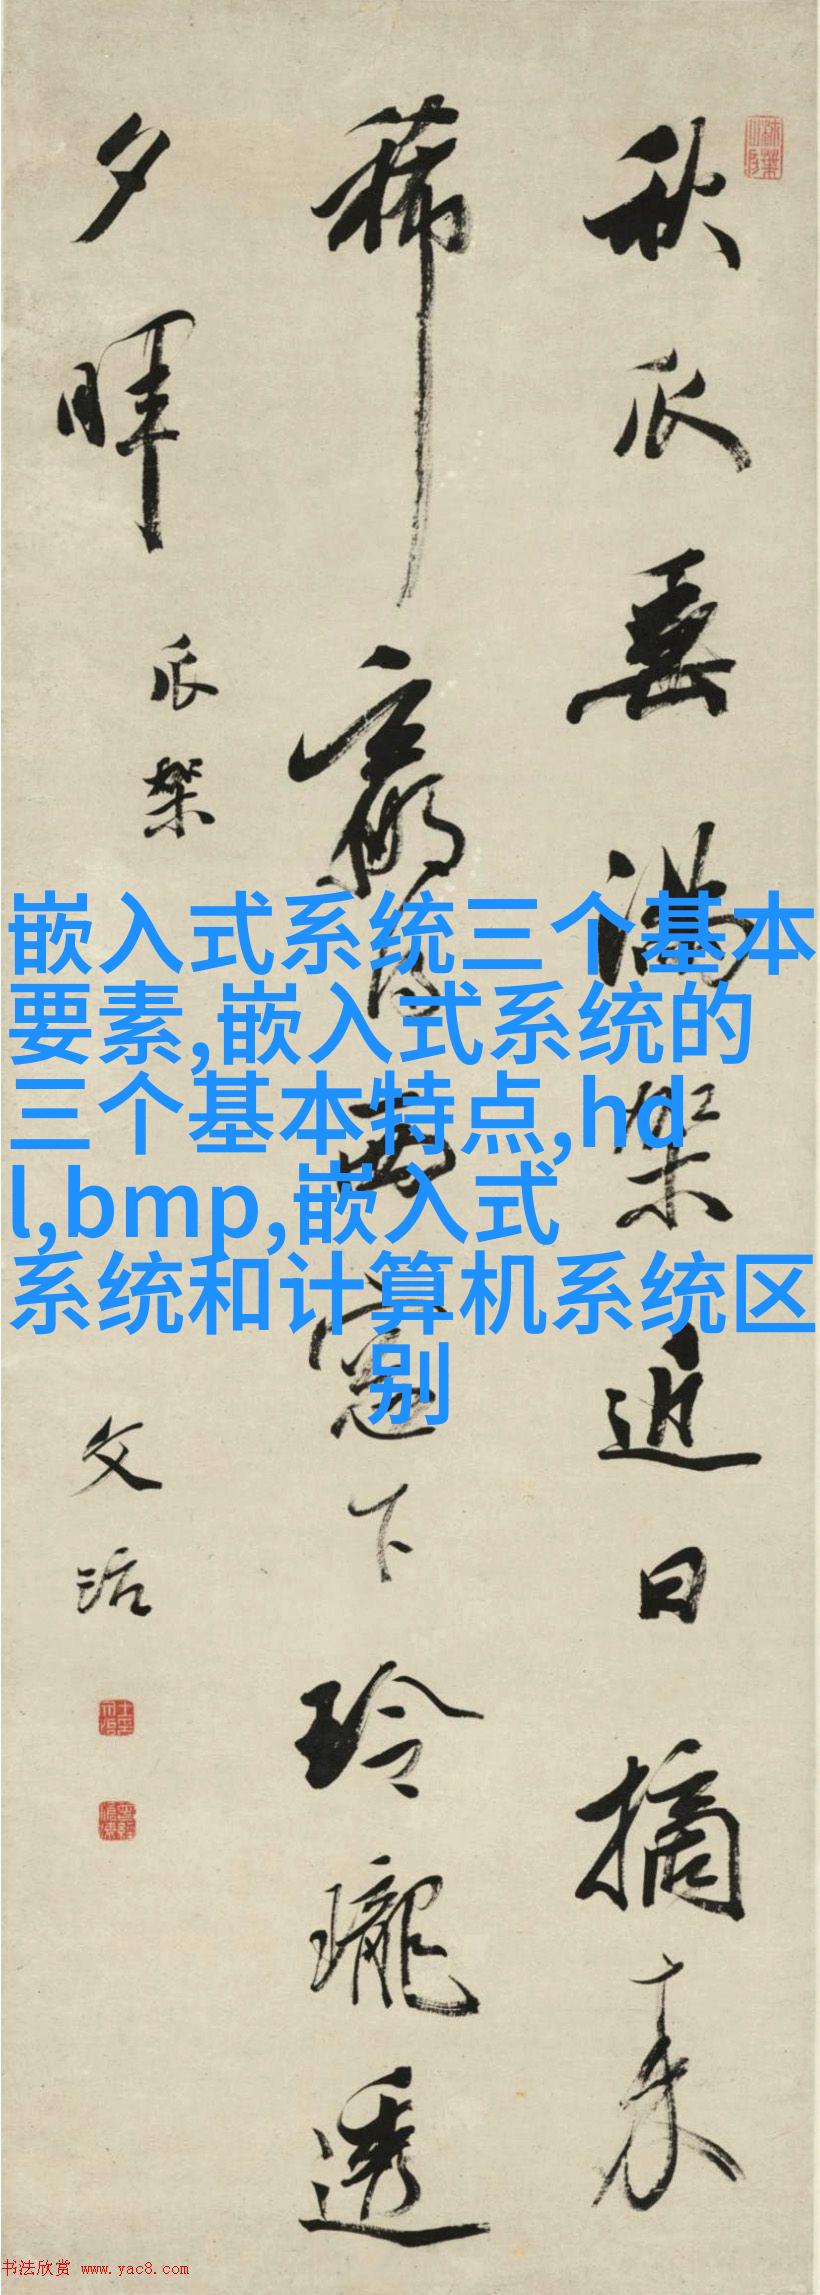 秋瓜垂滿架近日摘来
稀贏得西窻下玲瓏透
夕暉
瓜架
文治
嵌入式系统三个基本
要素,嵌入式系统的
三个基本特点,hd
l,bmp,嵌入式
系统和计算机系统区
别
书法欣赏 www.yac8.com